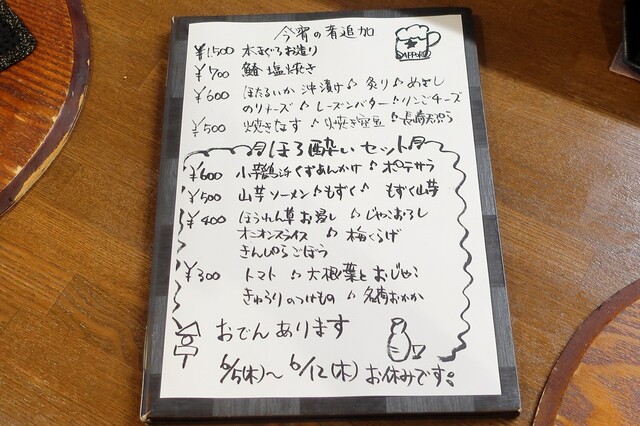 今宵の肴追加
SAPPORO
¥1,500 本まぐろお造り
¥700 鰆塩焼き
¥600 ほたるいか 沖漬け♪炙り♪めざし
のりチーズ♪レーズンバター♪りんごチーズ
¥500 焼きなす♪焼き空豆♪長崎
♬ほろ酔いセット♬
¥600 くずあんかけ♪ポテサラ
¥500 山芋ソーメン♪もずく♪もずく山芋
¥400 ほうれん草お浸し♪じゃこおろし
オニオンスライス♪梅くらげ
きんぴらごぼう
¥300 トマト♪大根葉とおじゃこ
きゅうりのつけもの♪名荷おかか
おでんあります
6/5(木)～6/12(木)お休みです。